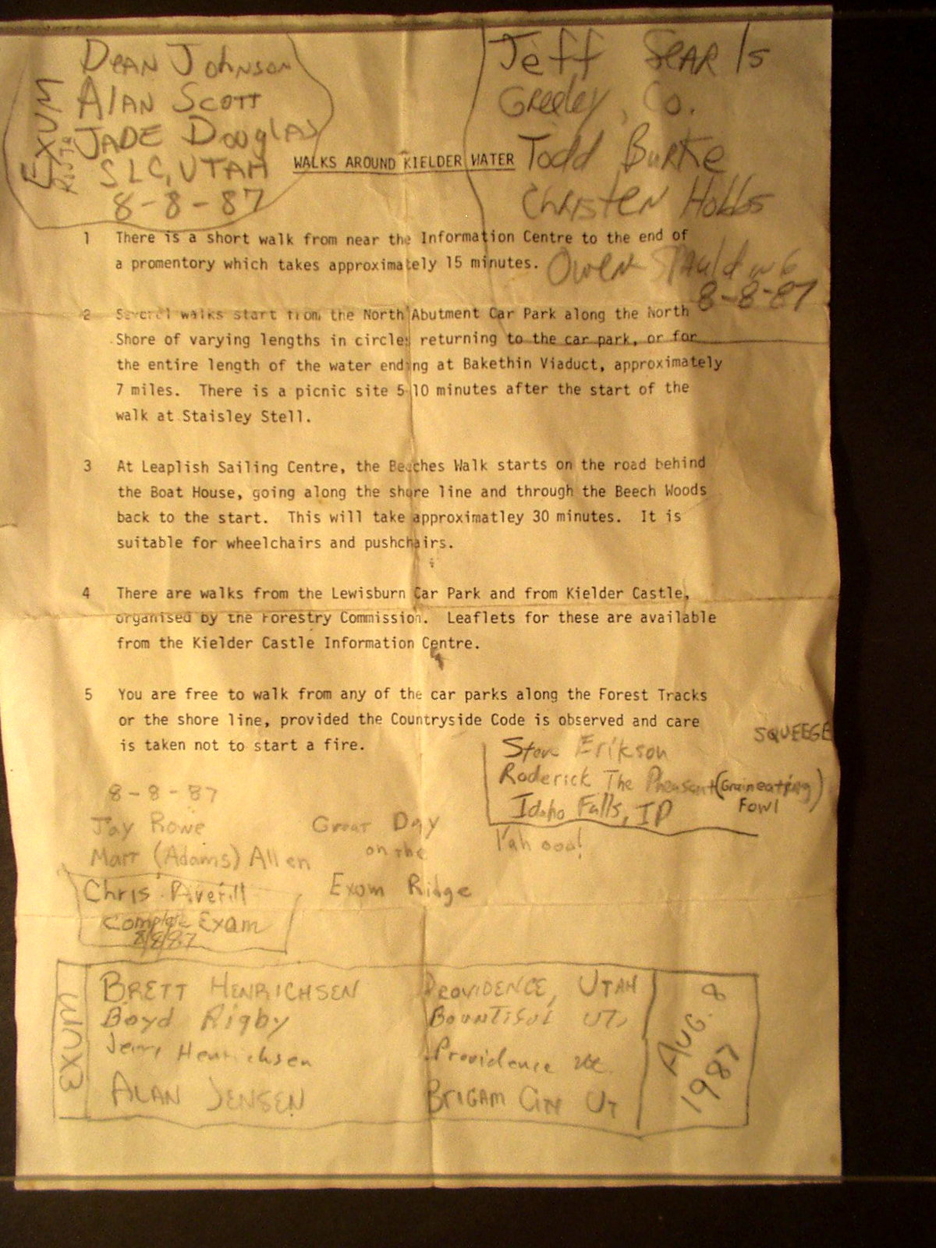 DEAN JOHNSON
ALAN SCOTT
JADE DOUGLAS
SLC, UTAH
8-8-87
EXUM
Jeff SEARls
Greeley, Co.
Todd Burke
Christen Hobbs
Owen Spaulding
8-8-87
WALKS AROUND KIELDER WATER
1 There is a short walk from near the Information Centre to the end of
a promentory which takes approximately 15 minutes.
2 Several walks start from the North Abutment Car Park along the North
Shore of varying lengths in circles returning to the car park, or for
the entire length of the water ending at Bakethin Viaduct, approximately
7 miles. There is a picnic site 5-10 minutes after the start of the
walk at Staisley Stell.
3 At Leaplish Sailing Centre, the Beeches Walk starts on the road behind
the Boat House, going along the shore line and through the Beech Woods
back to the start. This will take approximatley 30 minutes. It is
suitable for wheelchairs and pushchairs.
4 There are walks from the Lewisburn Car Park and from Kielder Castle,
organised by the Forestry Commission. Leaflets for these are available
from the Kielder Castle Information Centre.
5 You are free to walk from any of the car parks along the Forest Tracks
or the shore line, provided the Countryside Code is observed and care
is taken not to start a fire.
SQUEEGE
Steve Erikson
Roderick The Pheasant (Graineating Fowl)
Idaho Falls, ID
Yahooo!
8-8-87
Jay Rowe
Marr (Adams) Allen
Great Day
on the
Exum Ridge
Chris Averill
Complete Exam
8/8/87
EXUM
BRETT HENRICHSEN PROVIDENCE, UTAH
Boyd Rigby BOUNTIFUL UT,
Jerry Henrichsen Providence
ALAN JENSEN BRIGAM CITY UT
AUG. 8
1987